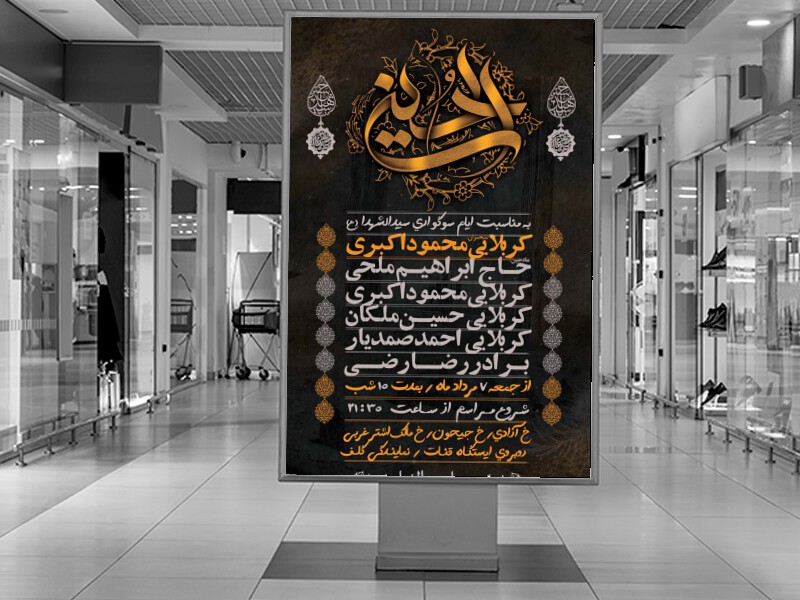 الحسین
به مناسبت ایام سوگواری سیدالشهدا (ع)
کربلایی محمود اکبری
حاج ابراهیم ملحی
کربلایی محمود اکبری
کربلایی حسین ملکان
کربلایی احمد صمدیار
برادر رضا رضی
از جمعه ۷ مرداد ماه / بمدت ۱۰ شب
شروع مراسم از ساعت ۲۱:۳۰
خ آزادی / خ جیحون / خ مالک اشتر غربی
روبروی ایستگاه قنات / نمایندگی گلف